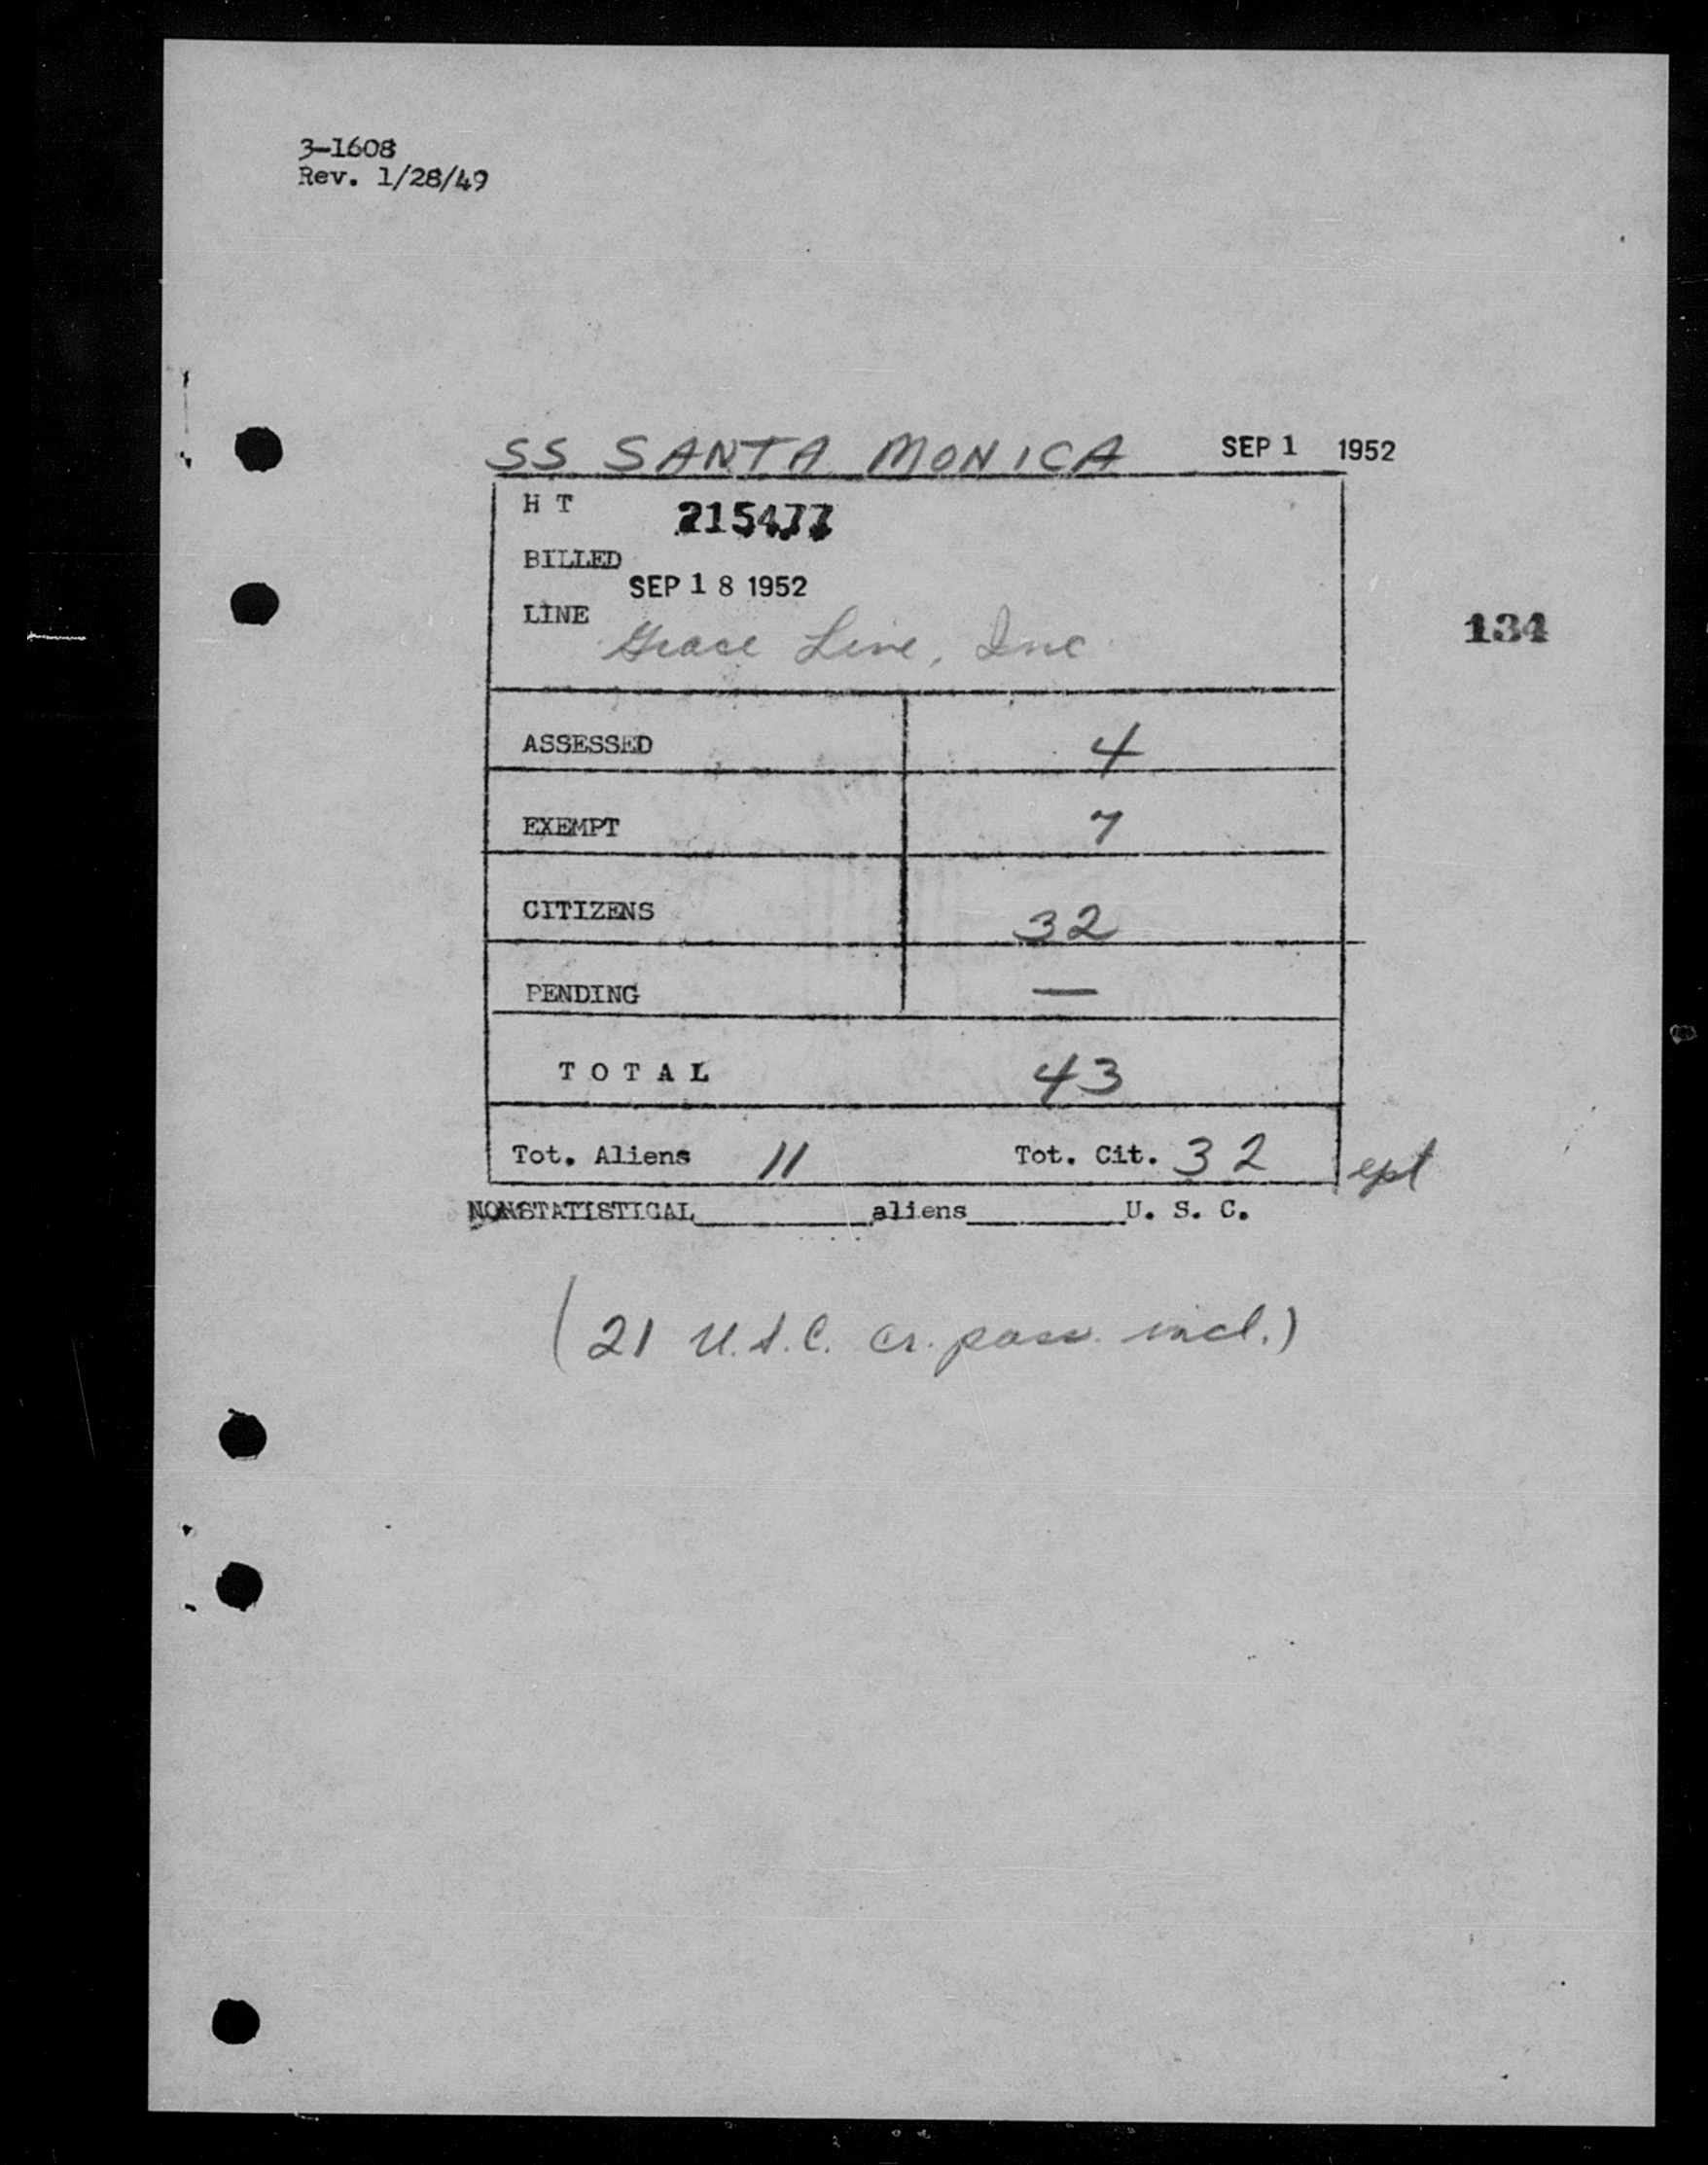 3-1608
Rev. 1/28/49
SS SANTA MONICA SEP 1 1952
H T 215477
BILLED
SEP 18 1952
LINE
Grace Line, Inc
134
ASSESSED 4
EXEMPT 7
CITIZENS 32
PENDING —
TOTAL 43
Tot. Aliens 11 Tot. Cit. 32
NONSTATISTICAL__________aliens__________U. S. C.
(21 U.S.C. cr. pass. incl.)